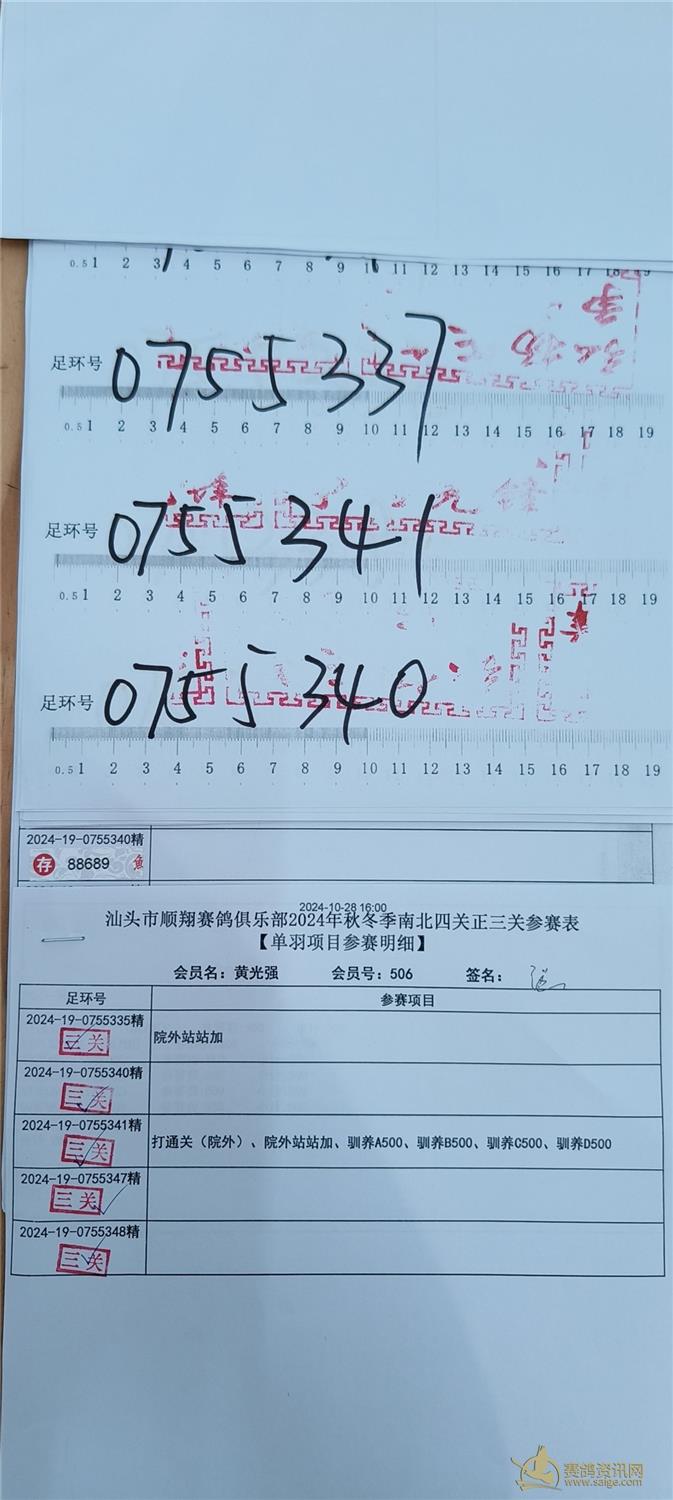 0.5 1 2 3 4 5 6 7 8 9 10 11 12 13 14 15 16 17 18 19
足环号 0755337
0.5 1 2 3 4 5 6 7 8 9 10 11 12 13 14 15 16 17 18 19
足环号 0755341
0.5 1 2 3 4 5 6 7 8 9 10 11 12 13 14 15 16 17 18 19
足环号 0755340
0.5 1 2 3 4 5 6 7 8 9 10 11 12 13 14 15 16 17 18 19
2024-19-0755340精
存 88689
2024-10-28 16:00
汕头市顺翔赛鸽俱乐部2024年秋冬季南北四关正三关参赛表
【单羽项目参赛明细】
会员名：黄光强 会员号：506 签名：
足环号 参赛项目
2024-19-0755335精
三关
院外站站加
2024-19-0755340精
三关
2024-19-0755341精
三关
打通关（院外）、院外站站加、驯养A500、驯养B500、驯养C500、驯养D500
2024-19-0755347精
三关
2024-19-0755348精
三关
赛鸽资讯网
www.saige.com